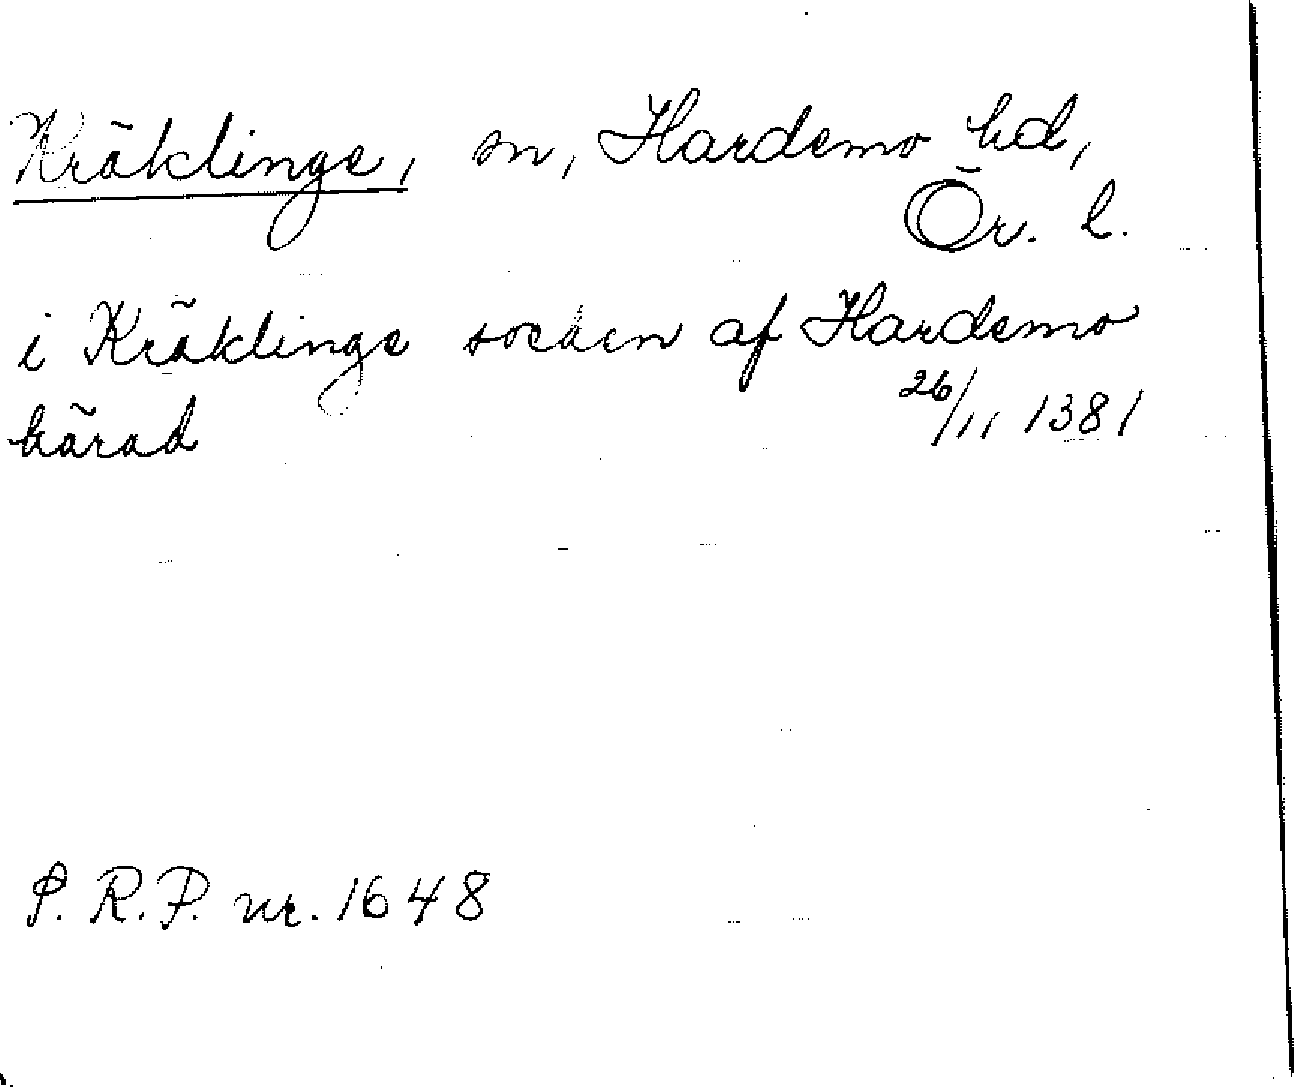 Kräklinge, sn, Hardemo hd,
Ör. l.
i Kräklinge socken af Hardemo
härad 26/11 1381
S. R. P. nr. 1648